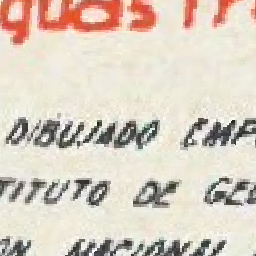 guas
DIBUJADO EMP
TITUTO DE GE
ON NACIONAL